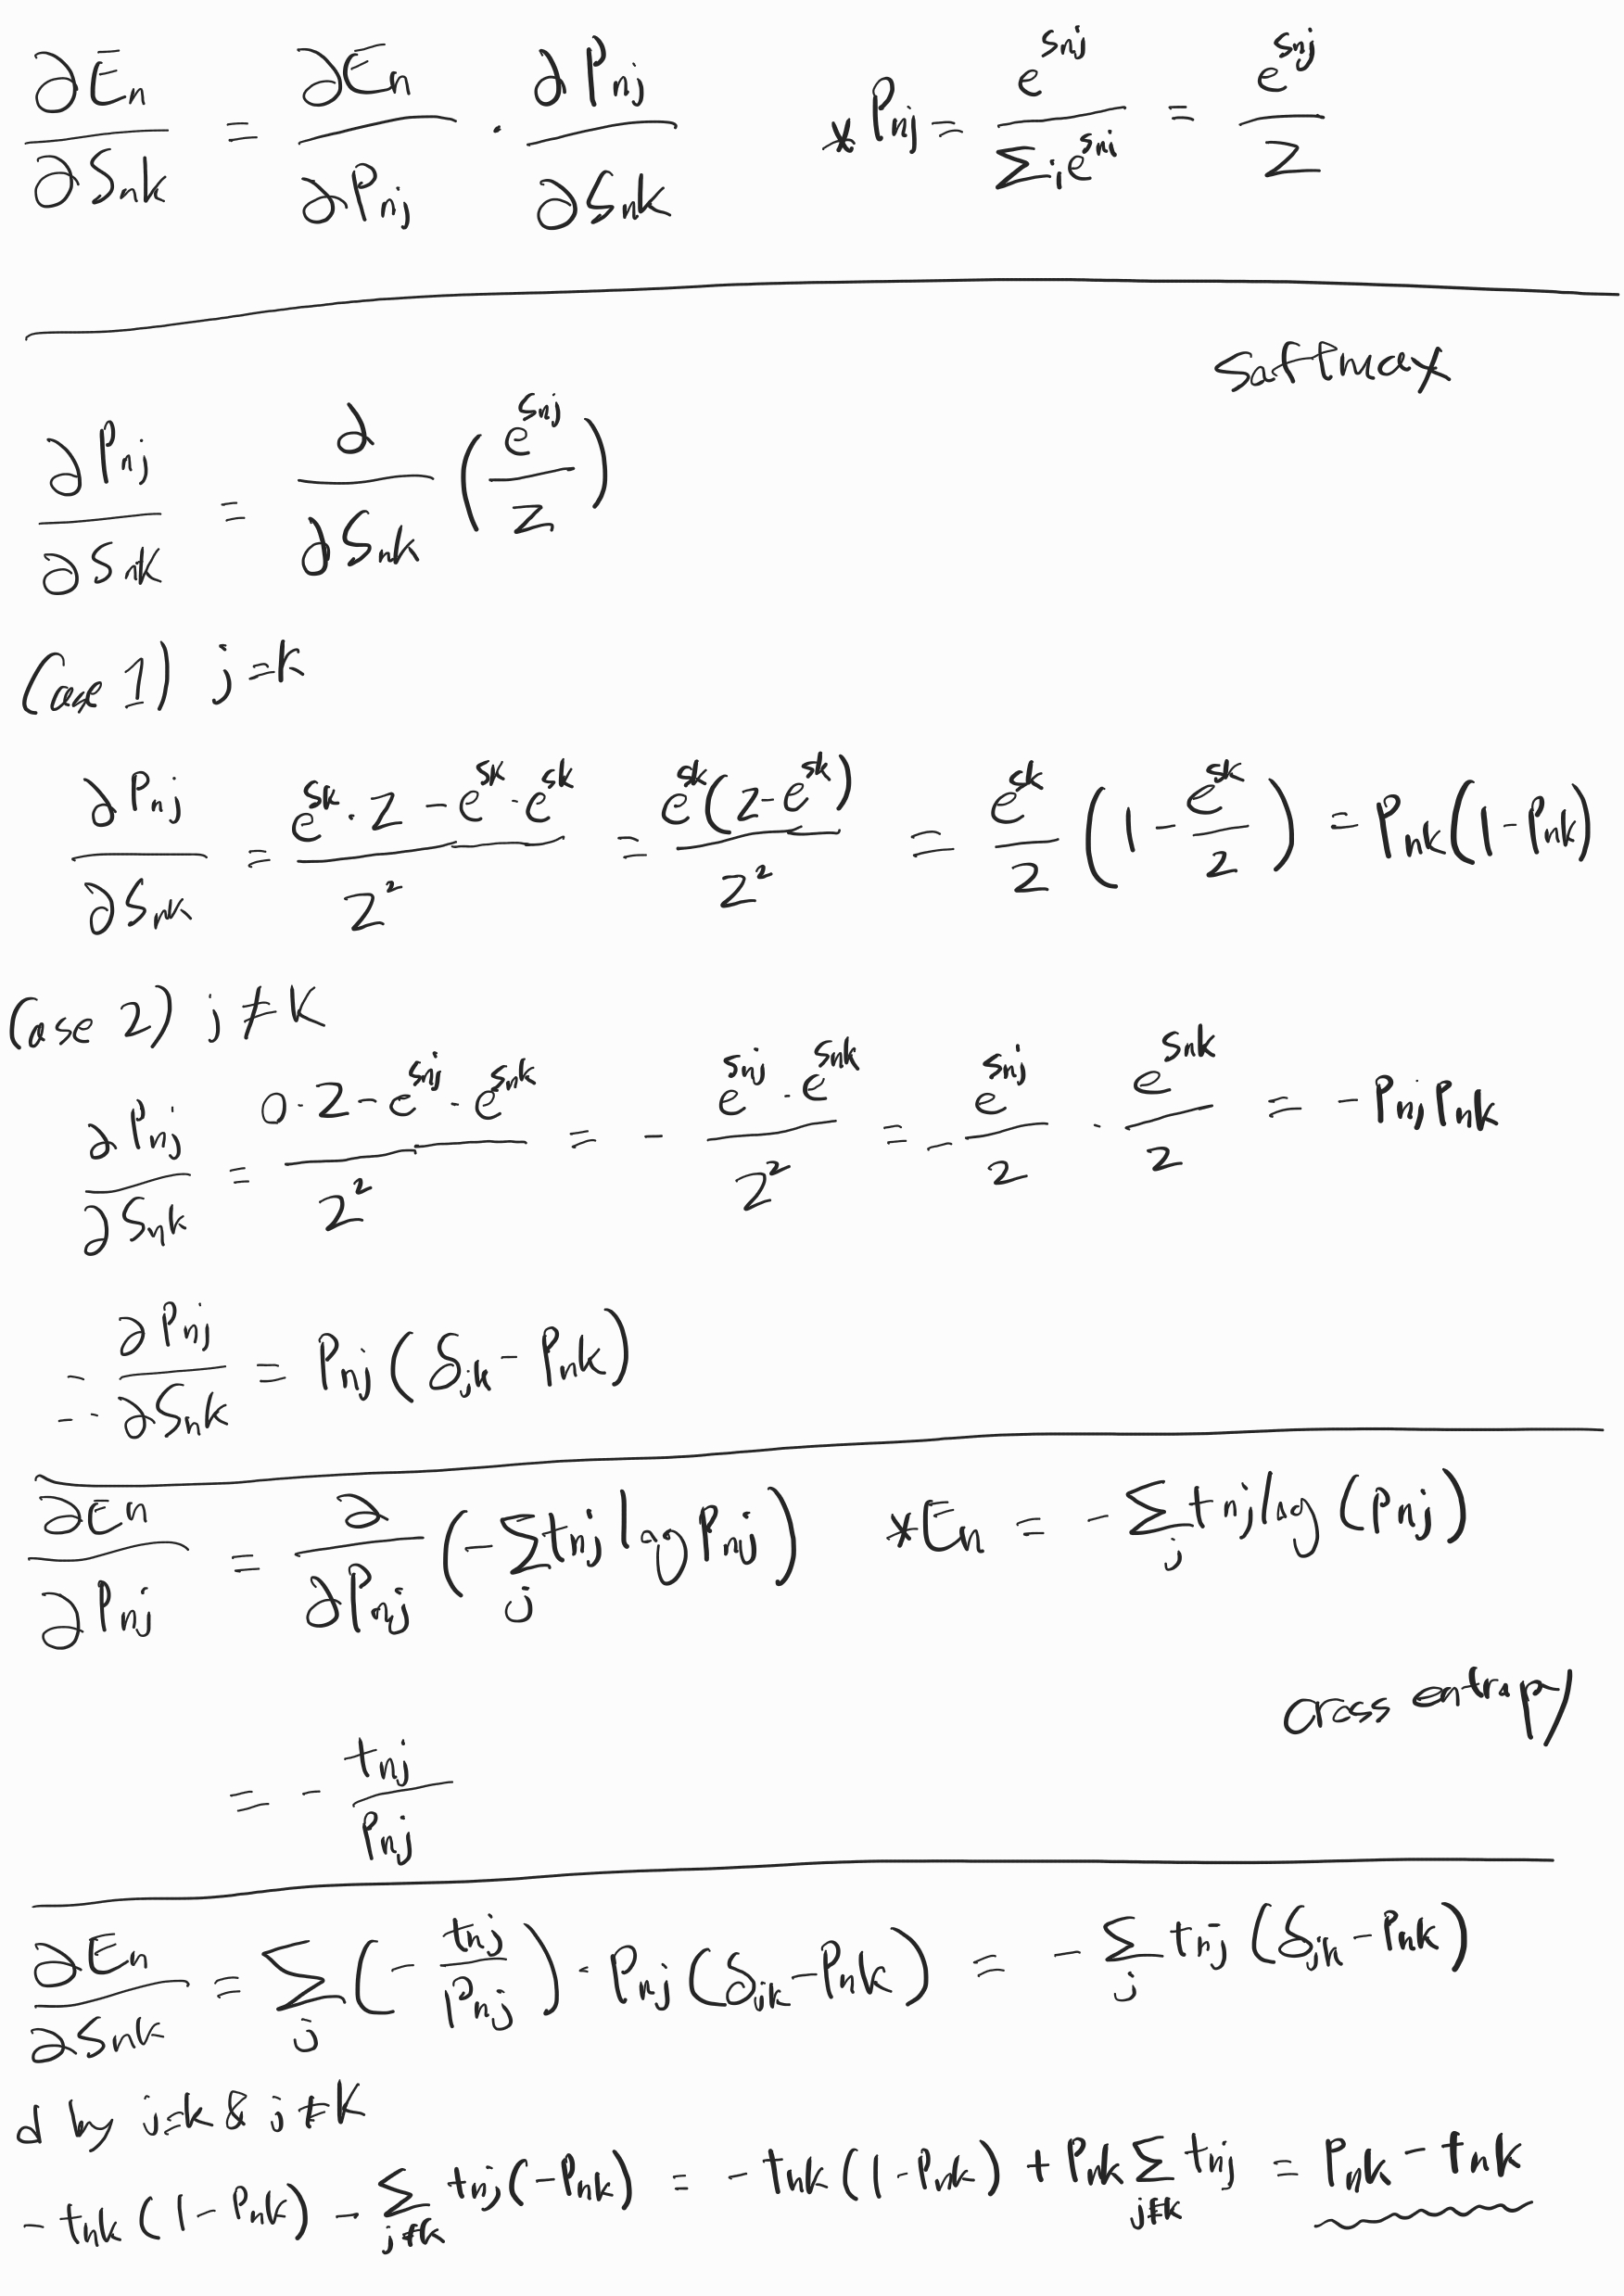 ∂Eₙ/∂Sₙₖ = ∂Eₙ/∂Pₙⱼ · ∂Pₙⱼ/∂Sₙₖ    * Pₙⱼ = e^{Sₙⱼ}/Σᵢe^{Sₙᵢ} = e^{Sₙⱼ}/Z
softmax
∂Pₙⱼ/∂Sₙₖ = ∂/∂Sₙₖ (e^{Sₙⱼ}/Z)
Case 1) j=k
∂Pₙⱼ/∂Sₙₖ = (e^{Sk}·Z - e^{Sk}·e^{Sk})/Z² = e^{Sk}(Z-e^{Sk})/Z² = e^{Sk}/Z (1 - e^{Sk}/Z) = Pₙₖ(1-Pₙₖ)
Case 2) j≠k
∂Pₙⱼ/∂Sₙₖ = (0·Z - e^{Sₙⱼ}·e^{Sₙₖ})/Z² = - e^{Sₙⱼ}·e^{Sₙₖ}/Z² = - e^{Sₙⱼ}/Z · e^{Sₙₖ}/Z = - PₙⱼPₙₖ
∴ ∂Pₙⱼ/∂Sₙₖ = Pₙⱼ(δⱼₖ - Pₙₖ)
∂Eₙ/∂Pₙⱼ = ∂/∂Pₙⱼ (-Σⱼ tₙⱼ log Pₙⱼ)    * Eₙ = -Σⱼ tₙⱼ log(Pₙⱼ)
cross entropy
= - tₙⱼ/Pₙⱼ
∂Eₙ/∂Sₙₖ = Σⱼ (- tₙⱼ/Pₙⱼ) · Pₙⱼ(δⱼₖ - Pₙₖ) = - Σⱼ tₙⱼ(δⱼₖ - Pₙₖ)
d by j=k & j≠k
-tₙₖ(1-Pₙₖ) - Σ_{j≠k} tₙⱼ(-Pₙₖ) = -tₙₖ(1-Pₙₖ) + Pₙₖ Σ_{j≠k} tₙⱼ = Pₙₖ - tₙₖ